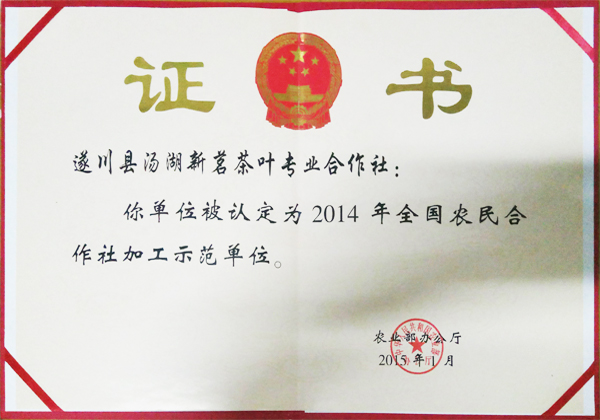 证 书
遂川县汤湖新茗茶叶专业合作社：
你单位被认定为2014年全国农民合
作社加工示范单位。
农业部办公厅
2015年1月